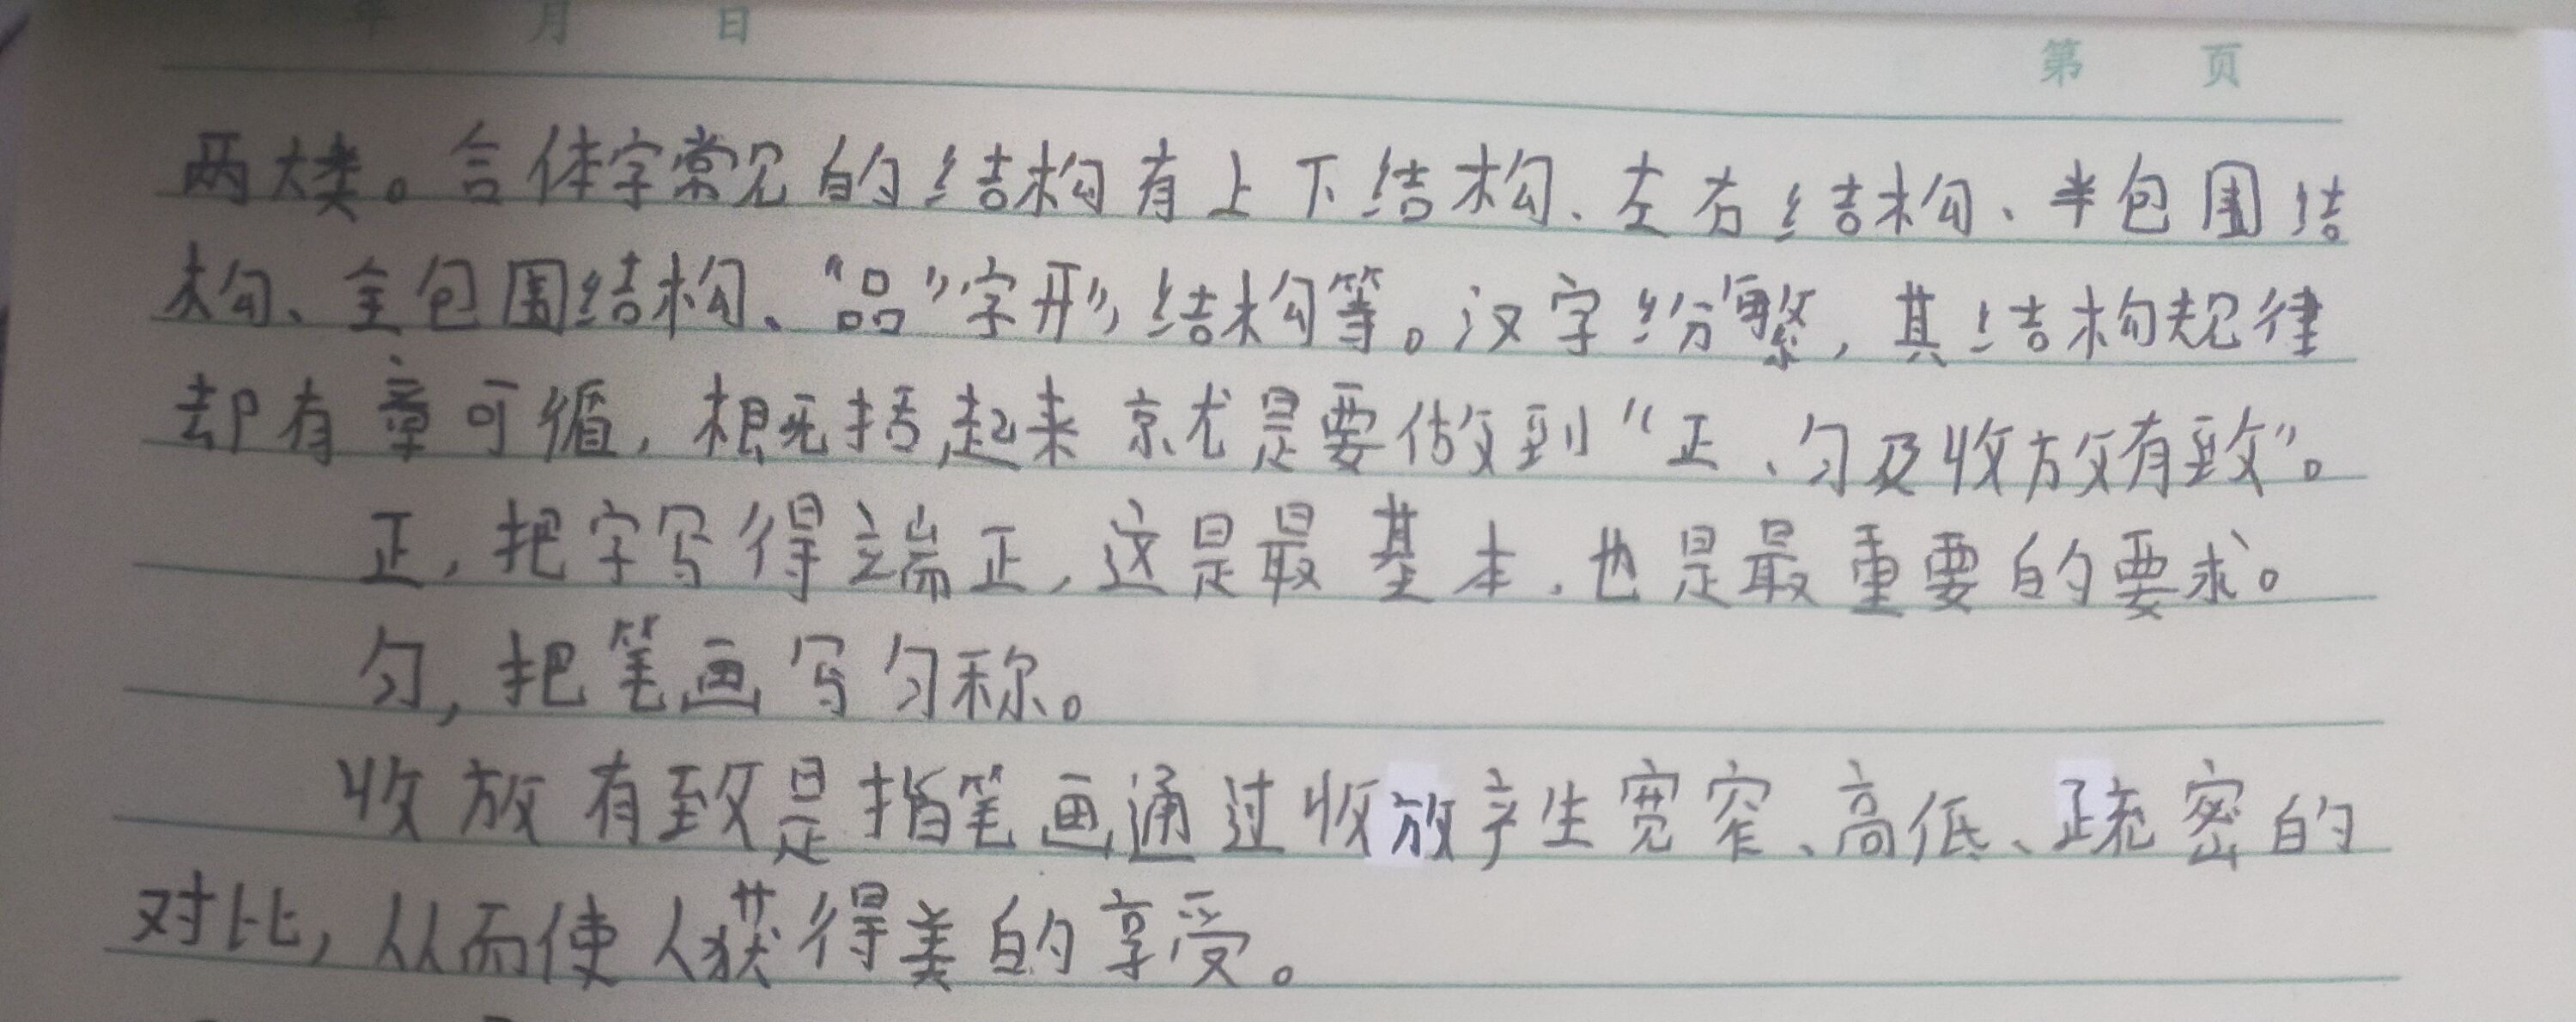 年 月 日
第 页
两大类。合体字常见的结构有上下结构、左右结构、半包围结
构、全包围结构、“品”字形结构等。汉字纷繁，其结构规律
却有章可循，概括起来就是要做到“正、匀及收放有致”。
正，把字写得端正，这是最基本，也是最重要的要求。
匀，把笔画写匀称。
收放有致是指笔画通过收放产生宽窄、高低、疏密的
对比，从而使人获得美的享受。